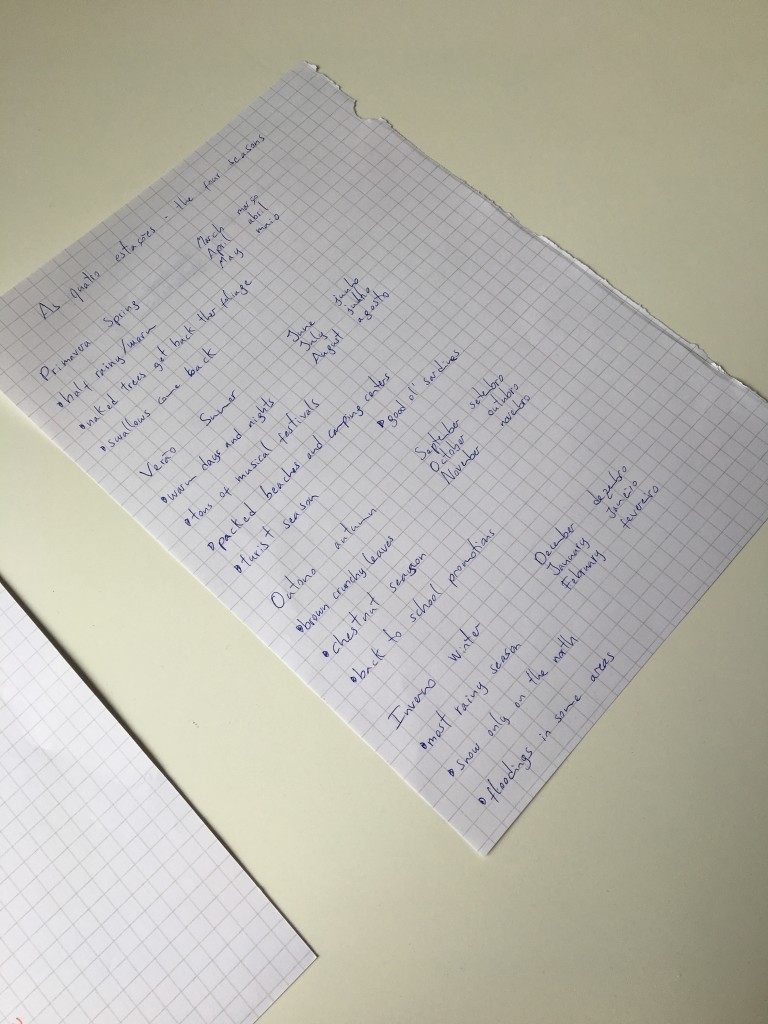 As quatro estações - the four seasons
Primavera Spring
March março
April abril
May maio
• half rainy/warm
• naked trees get back ther foliage
• swallows come back
Verão Summer
June junho
July julho
August agosto
• warm days and nights
• tons of musical festivals
• packed beaches and camping centers
• good ol' sardines
• turist season
Outono autumn
September setembro
October outubro
November novembro
• brown crunchy leaves
• chestnut season
• back to school promotions
Inverno winter
December dezembro
January Janeiro
February fevereiro
• most rainy season
• snow only on the north
• floodings in some areas